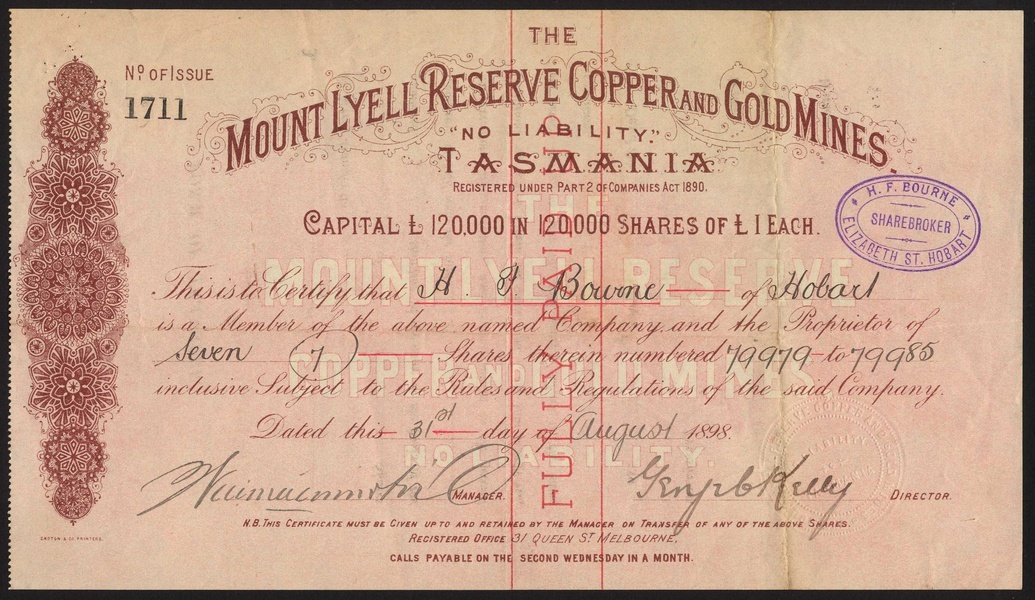 THE
Nº OF ISSUE
1711
MOUNT LYELL RESERVE COPPER AND GOLD MINES.
"NO LIABILITY."
TASMANIA
REGISTERED UNDER PART 2 OF COMPANIES ACT 1890.
CAPITAL £ 120,000 IN 120,000 SHARES OF £ 1 EACH.
H. F. BOURNE
SHAREBROKER
ELIZABETH ST. HOBART
This is to Certify that H. F. Bourne of Hobart
is a Member of the above named Company and the Proprietor of
Seven (7) Shares therein numbered 79979 to 79985
inclusive Subject to the Rules and Regulations of the said Company.
Dated this 31st day of August 1898.
MANAGER.
Kelly
DIRECTOR.
FULLY PAID UP
THE
MOUNT LYELL RESERVE
COPPER AND GOLD MINES
NO LIABILITY.
N.B. THIS CERTIFICATE MUST BE GIVEN UP TO AND RETAINED BY THE MANAGER ON TRANSFER OF ANY OF THE ABOVE SHARES.
REGISTERED OFFICE 31 QUEEN ST MELBOURNE.
CALLS PAYABLE ON THE SECOND WEDNESDAY IN A MONTH.